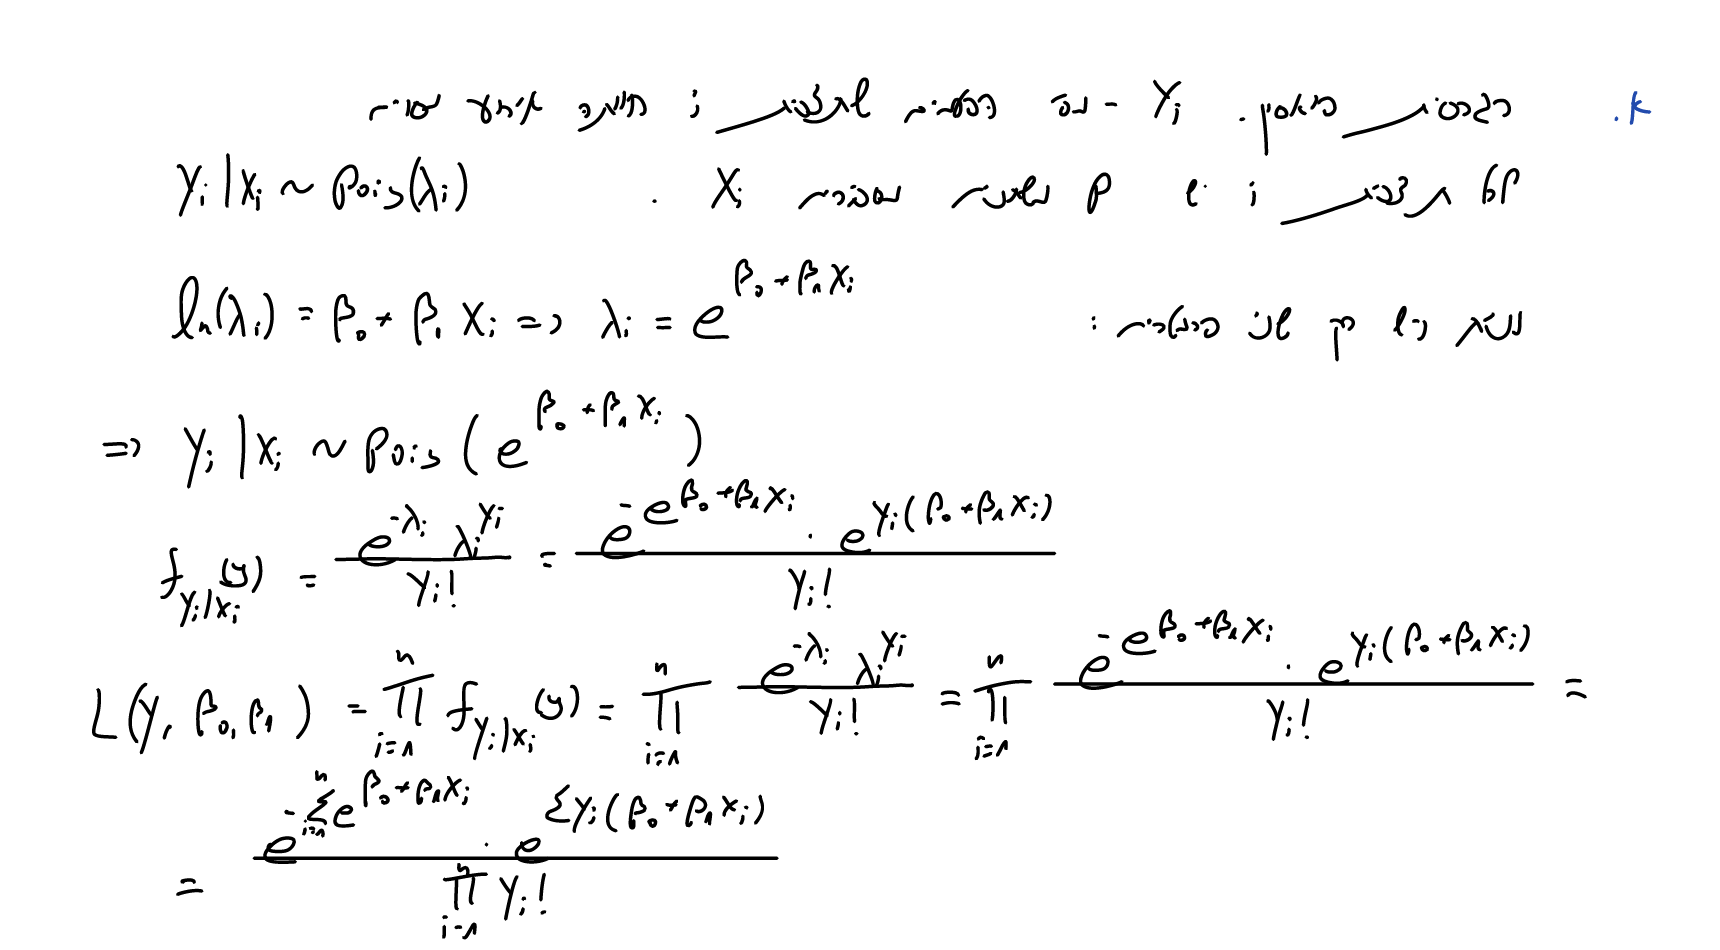 א. רגרסיית פואסון. Y_i - מס' הפעמים שתצפית i חוותה אירוע מסוים
לכל תצפית i יש p משתנים מסבירים X_i . Y_i | X_i ~ Pois(λ_i)
נניח ויש רק שני פרמטרים : ln(λ_i) = β_0 + β_1 X_i => λ_i = e^{β_0 + β_1 X_i}
=> Y_i | X_i ~ Pois( e^{β_0 + β_1 X_i} )
f_{Y_i|X_i}(y) = \frac{e^{-λ_i} λ_i^{Y_i}}{Y_i!} = \frac{e^{-e^{β_0 + β_1 X_i}} · e^{Y_i(β_0 + β_1 X_i)}}{Y_i!}
L(Y, β_0, β_1) = \prod_{i=1}^{n} f_{Y_i|X_i}(y) = \prod_{i=1}^{n} \frac{e^{-λ_i} λ_i^{Y_i}}{Y_i!} = \prod_{i=1}^{n} \frac{e^{-e^{β_0 + β_1 X_i}} · e^{Y_i(β_0 + β_1 X_i)}}{Y_i!} =
= \frac{e^{-\sum_{i=1}^{n} e^{β_0 + β_1 X_i}} · e^{\sum Y_i(β_0 + β_1 X_i)}}{\prod_{i=1}^{n} Y_i!}